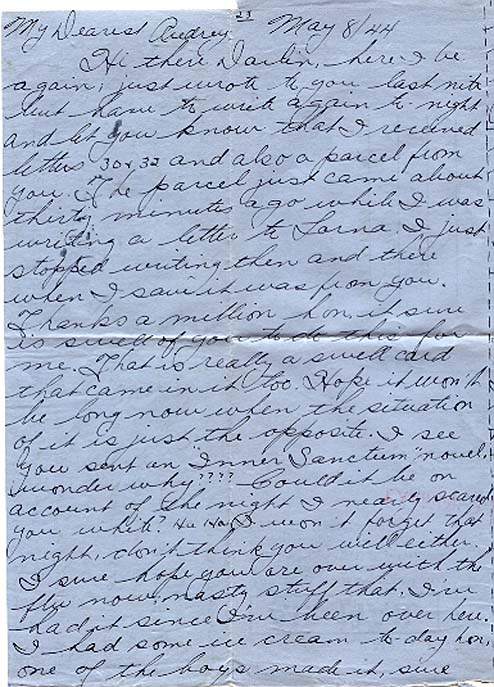 23
My Dearest Audrey May 8/44
Hi there Darlin, here I be
again, just wrote to you last nite
but have to write again to-night
and let you know that I received
letters 30 & 32 and also a parcel from
you. The parcel just came about
thirty minutes ago while I was
writing a letter to Lorna, I just
stopped writing then and there
when I saw it was from you.
Thanks a million hon, it sure
is swell of you to do this for
me. That is really a swell card
that came in it too. Hope it won't
be long now when the situation
of it is just the opposite. I see
you sent an "Inner Sanctum" novel,
wonder why???? Could it be on
account of the night I nearly scared
you white? Ha Ha, I won't forget that
night, don't think you will either.
I sure hope you are over with the
flu now, nasty stuff that. I've
had it since I've been over here.
I had some ice cream to-day hon,
one of the boys made it, sure